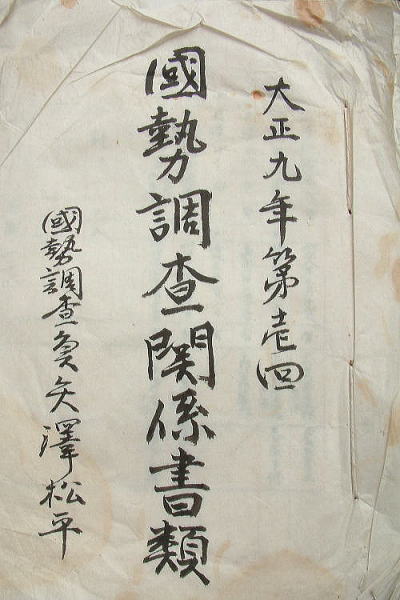 大正九年第壱回
國勢調査関係書類
國勢調査員矢澤松平